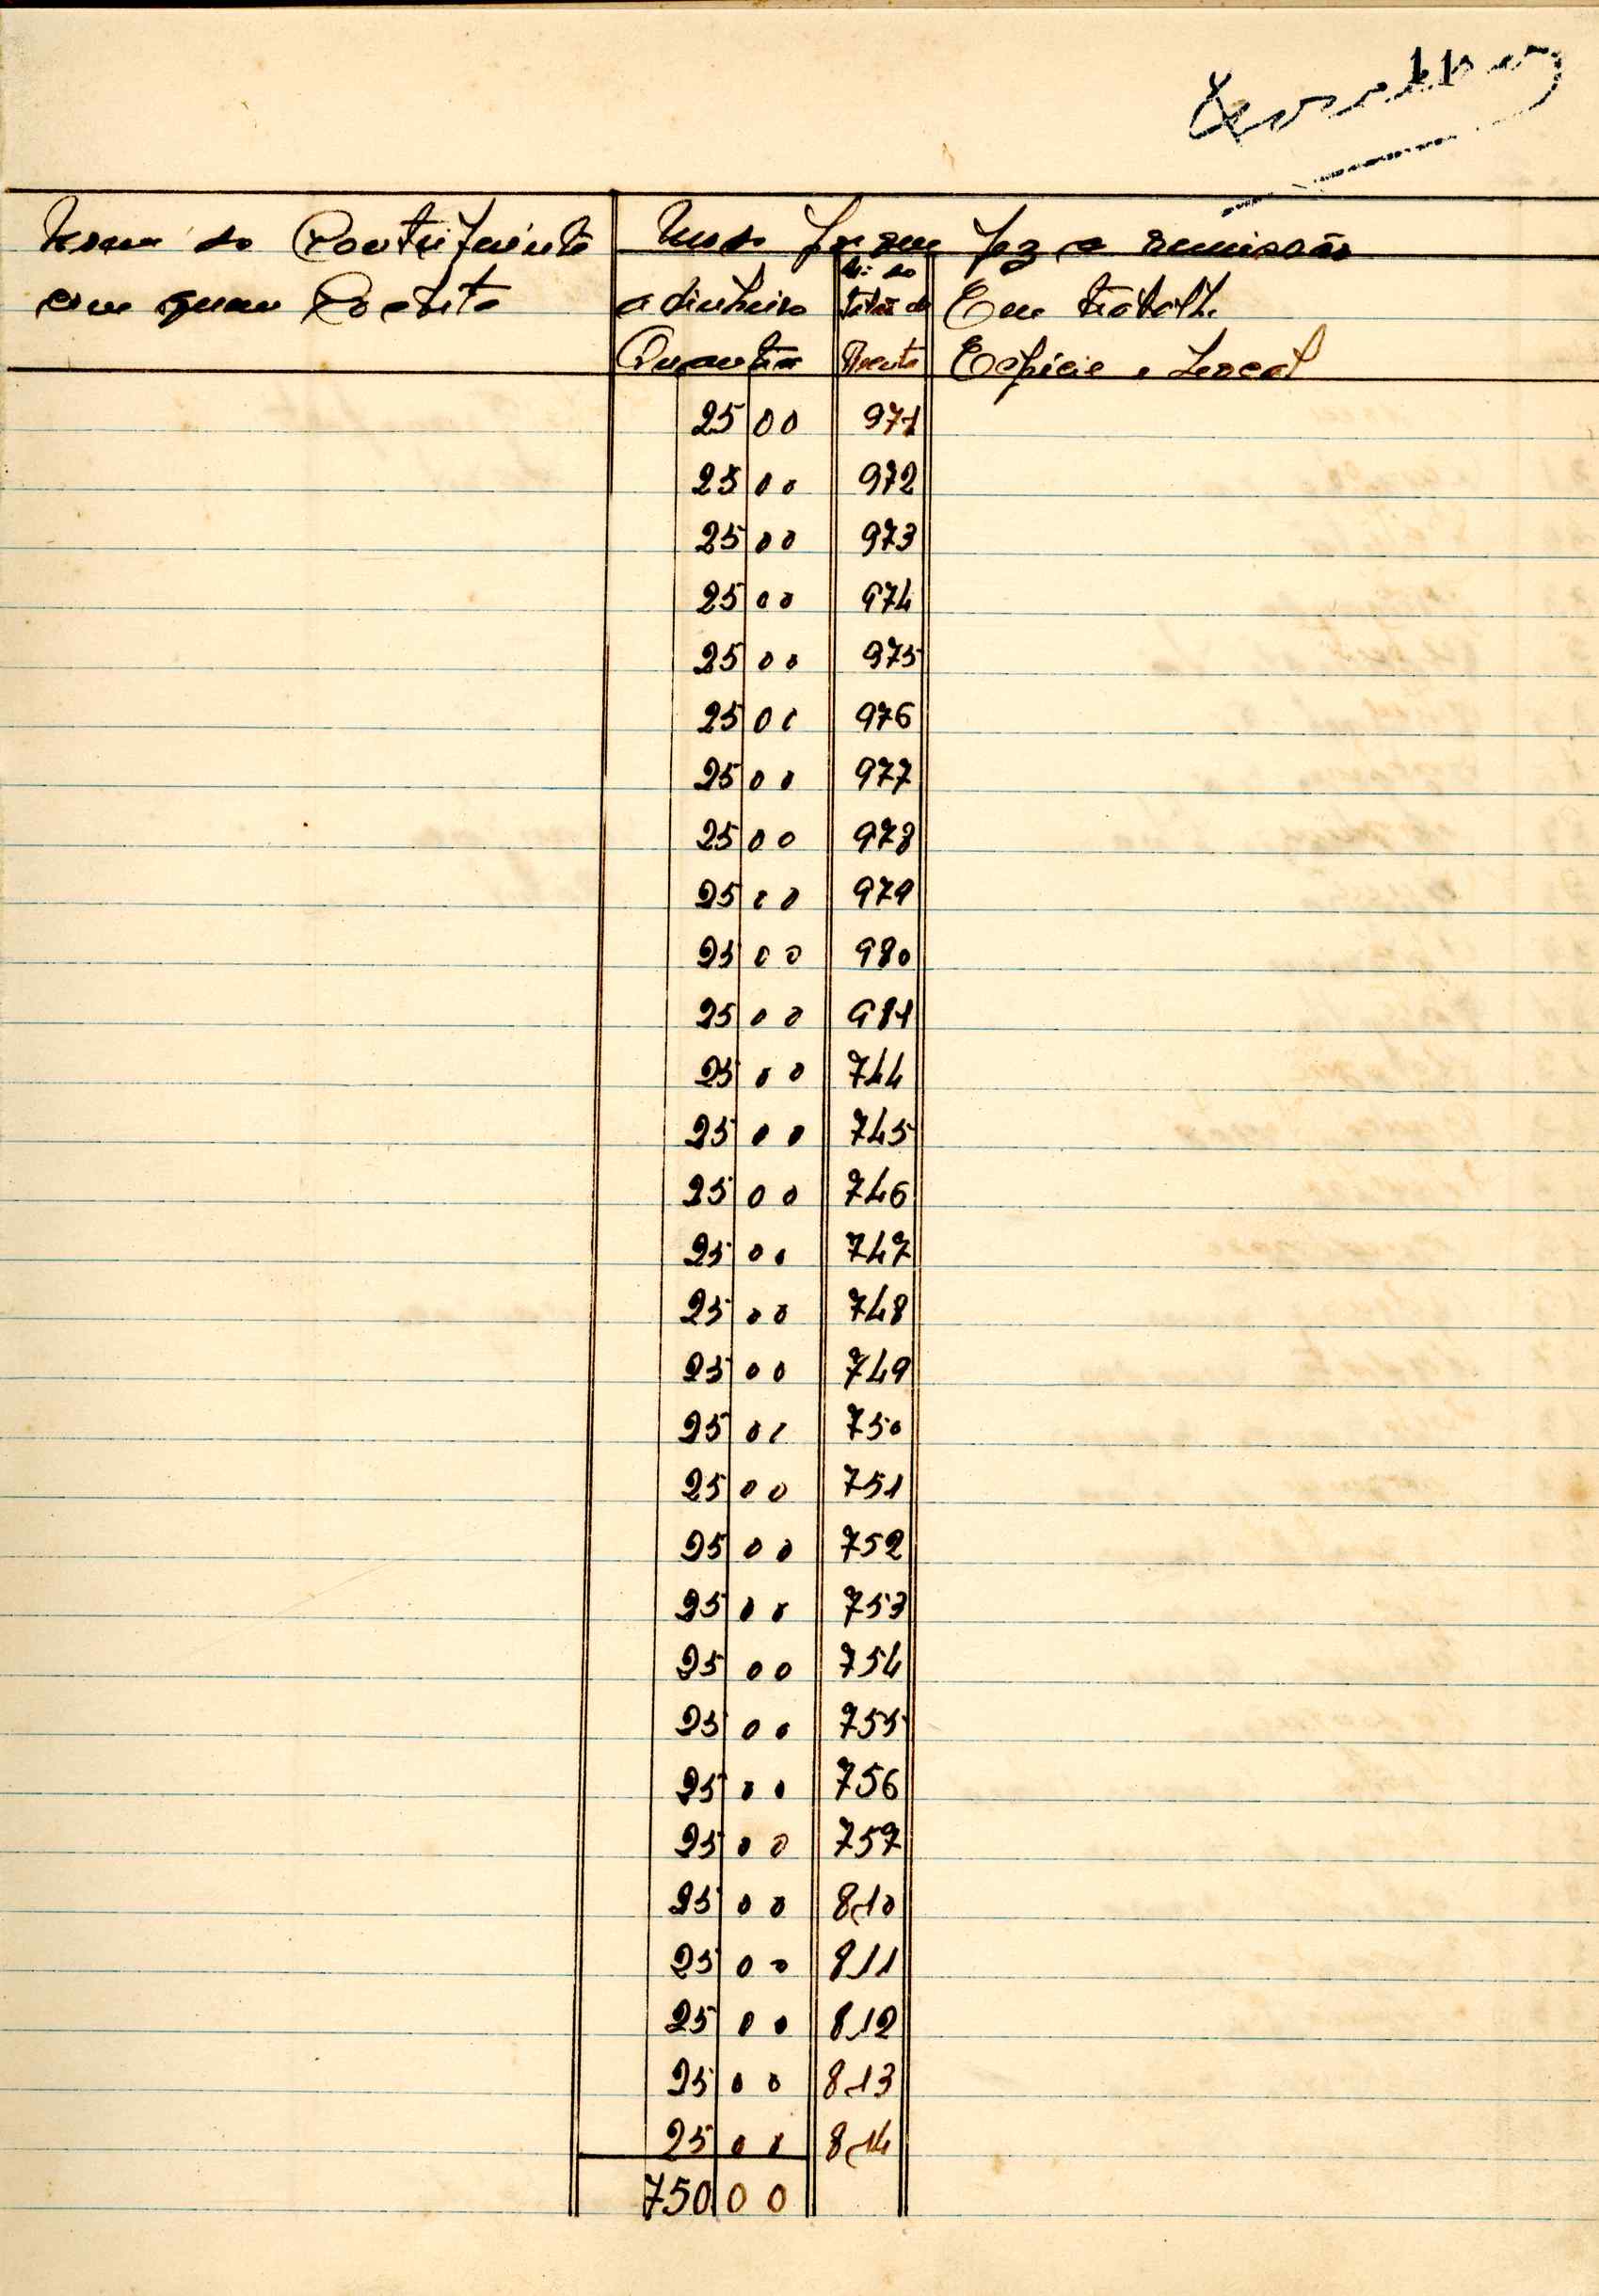 Nome do Contribuinte
com quem Coabita
Modo porque fez a remissão
a dinheiro
Quantia
Nº do
Talão de
Receita
Em trabalho
Espécie e Local
25 00 971
25 00 972
25 00 973
25 00 974
25 00 975
25 00 976
25 00 977
25 00 978
25 00 979
25 00 980
25 00 981
25 00 744
25 00 745
25 00 746
25 00 747
25 00 748
25 00 749
25 00 750
25 00 751
25 00 752
25 00 753
25 00 754
25 00 755
25 00 756
25 00 757
25 00 810
25 00 811
25 00 812
25 00 813
25 00 814
750 00